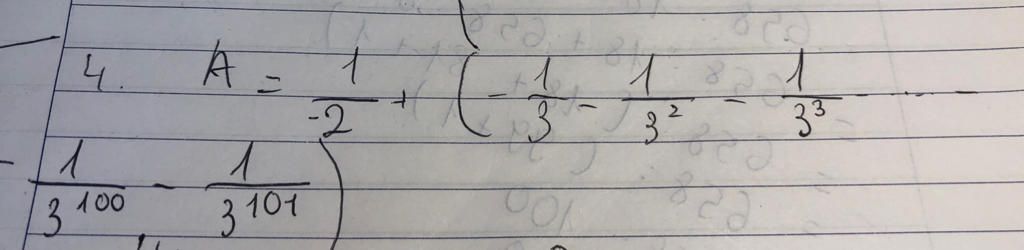 4. A = \frac{1}{-2} + ( - \frac{1}{3} - \frac{1}{3^2} - \frac{1}{3^3} - ... -
- \frac{1}{3^{100}} - \frac{1}{3^{101}} )